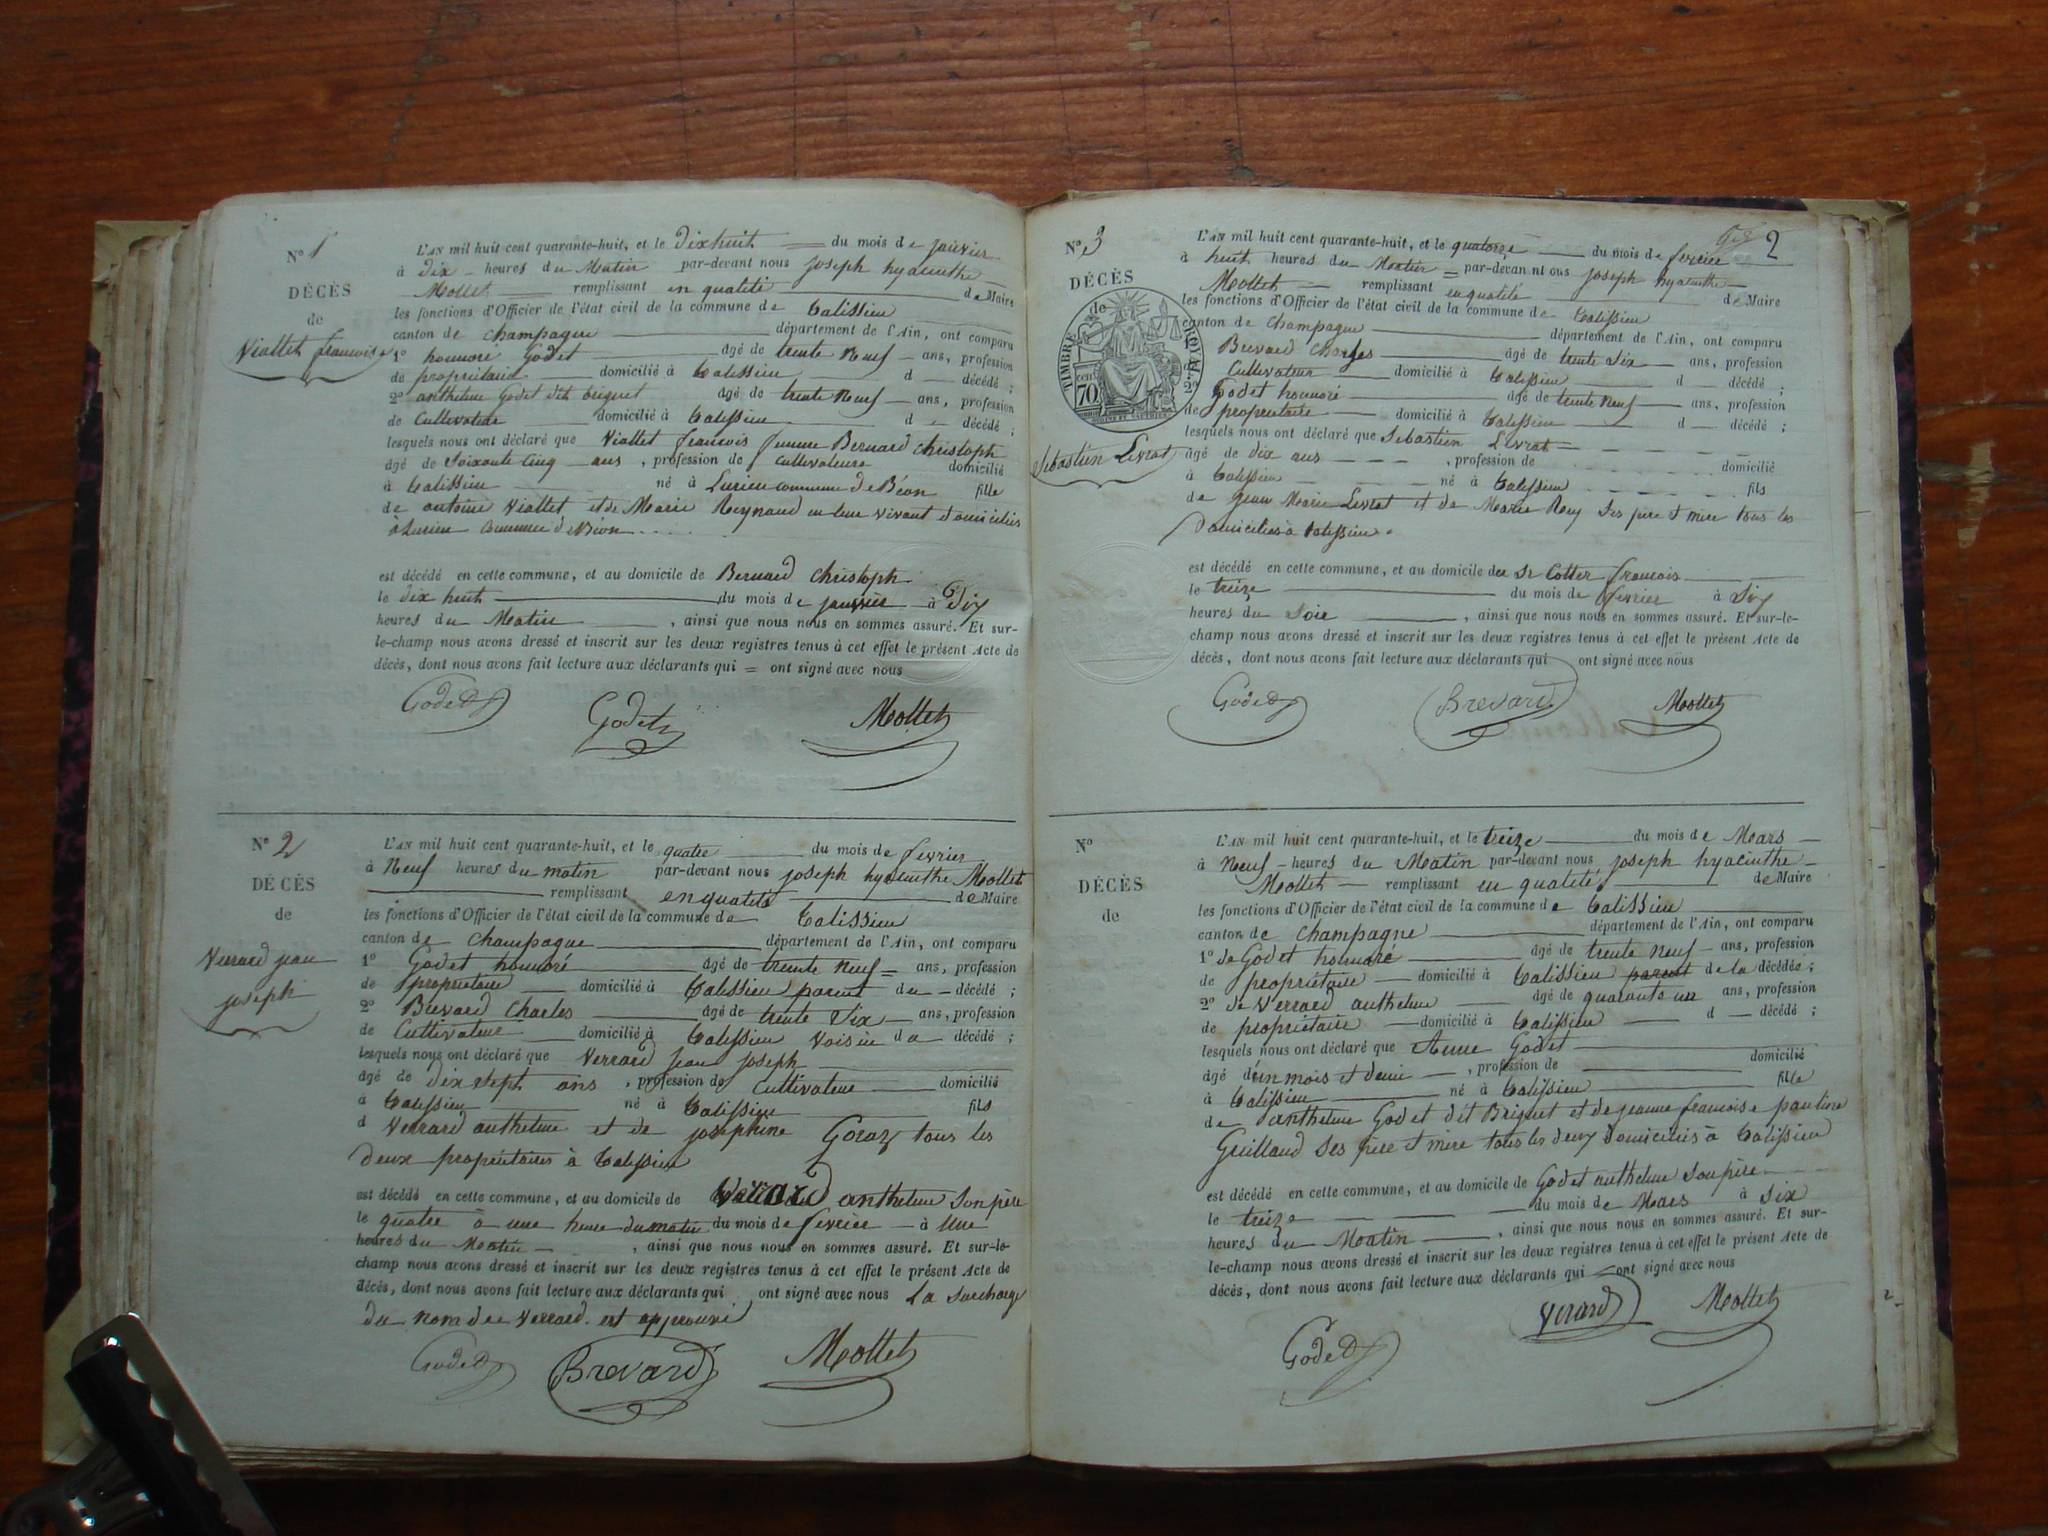 N° 1
DÉCÈS
de
Viallet françoise
L'AN mil huit cent quarante-huit, et le dix huit du mois de janvier
à dix heures du Matin par-devant nous joseph hyacinthe
Mollet remplissant en qualité de Maire
les fonctions d'Officier de l'état civil de la commune de Talissieu
canton de champagne département de l'Ain, ont comparu
1° honnoré Godet âgé de trente Neuf ans, profession
de propriétaire domicilié à Talissieu d décédé ;
2° anthelme Godet dit briguet âgé de trente Neuf ans, profession
de Cultivateur domicilié à Talissieu d décédé ;
lesquels nous ont déclaré que Viallet françois femme Bernard Christoph
âgé de Soixante Cinq ans, profession de cultivateure domicilié
à Talissieu né à Lurieu commune de Béon fille
de antoine Viallet et de Marie Reynaud en leur vivant domiciliés
à Lurieu commune de Béon
est décédé en cette commune, et au domicile de Bernard christoph
le dix huit du mois de janvier à Dix
heures du Matin , ainsi que nous nous en sommes assuré. Et sur-
le-champ nous avons dressé et inscrit sur les deux registres tenus à cet effet le présent Acte de
décès, dont nous avons fait lecture aux déclarants qui = ont signé avec nous
Godet Godet Mollet
N° 2
DÉCÈS
de
Verrard jean
joseph
L'AN mil huit cent quarante-huit, et le quatre du mois de fevrier
à Neuf heures du matin par-devant nous joseph hyacinthe Mollet
remplissant en qualité de Maire
les fonctions d'Officier de l'état civil de la commune de Talissieu
canton de champagne département de l'Ain, ont comparu
1° Godet honnoré âgé de trente neuf = ans, profession
de propriétaire domicilié à Talissieu parent du décédé ;
2° Brevard Charles âgé de trente Six ans, profession
de Cultivateur domicilié à Talissieu Voisin du décédé ;
lesquels nous ont déclaré que Verrard jean joseph
âgé de dix sept ans , profession de Cultivateur domicilié
à Talissieu né à Talissieu fils
d Verrard anthelme et de josephine Goraz tous les
deux propriétaires à Talissieu
est décédé en cette commune, et au domicile de Verrard anthelme Son père
le quatre à une heure du matin du mois de fevrier à Une
heures du Matin , ainsi que nous nous en sommes assuré. Et sur-le-
champ nous avons dressé et inscrit sur les deux registres tenus à cet effet le présent Acte de
décès, dont nous avons fait lecture aux déclarants qui ont signé avec nous La Surcharge
du nom de Verrard est approuvé
Godet Brevard Mollet
2
N° 3
DÉCÈS
de
TIMBRE ROYAL
70
Sébastien Livrat
L'AN mil huit cent quarante-huit, et le quatorze du mois de fevrier
à huit heures du Matin = par-devan nt ous joseph hyacinthe
Mollet remplissant en qualité de Maire
les fonctions d'Officier de l'état civil de la commune de Talissieu
canton de champagne département de l'Ain, ont comparu
Brevard Charles âgé de trente Six ans, profession
Cultivateur domicilié à Talissieu d décédé ;
2° Godet honnoré âgé de trente neuf ans, profession
de propriétaire domicilié à Talissieu d décédé ;
lesquels nous ont déclaré que Sebastien Livrat
âgé de dix ans , profession de domicilié
à Talissieu né à Talissieu fils
de jean Marie Livrat et de Marie Rey Ses père et mère tous les
Domiciliés à Talissieu.
est décédé en cette commune, et au domicile de Sr Cotter françois
le treize du mois de fevrier à Six
heures du Soir , ainsi que nous nous en sommes assuré. Et sur-le-
champ nous avons dressé et inscrit sur les deux registres tenus à cet effet le présent Acte de
décès, dont nous avons fait lecture aux déclarants qui ont signé avec nous
Godet Brevard Mollet
N°
DÉCÈS
de
L'AN mil huit cent quarante-huit, et le treize du mois de Mars
à Neuf heures du Matin par-devant nous joseph hyacinthe
Mollet remplissant en qualité de Maire
les fonctions d'Officier de l'état civil de la commune de Talissieu
canton de champagne département de l'Ain, ont comparu
1° de Godet honnoré âgé de trente neuf ans, profession
de propriétaire domicilié à Talissieu parent de la décédée ;
2° de Verrard anthelme âgé de quarante un ans, profession
de propriétaire domicilié à Talissieu d décédé ;
lesquels nous ont déclaré que Anne Godet
âgé d'un mois et demi , profession de domicilié
à Talissieu né à Talissieu fille
de anthelme Godet dit Briguet et de jeanne françoise pauline
Guillaud Ses père et mère tous les deux domiciliés à Talissieu
est décédé en cette commune, et au domicile de Godet anthelme Son père
le treize du mois de Mars à Six
heures du Matin , ainsi que nous nous en sommes assuré. Et sur-
le-champ nous avons dressé et inscrit sur les deux registres tenus à cet effet le présent Acte de
décès, dont nous avons fait lecture aux déclarants qui ont signé avec nous
Godet Verard Mollet